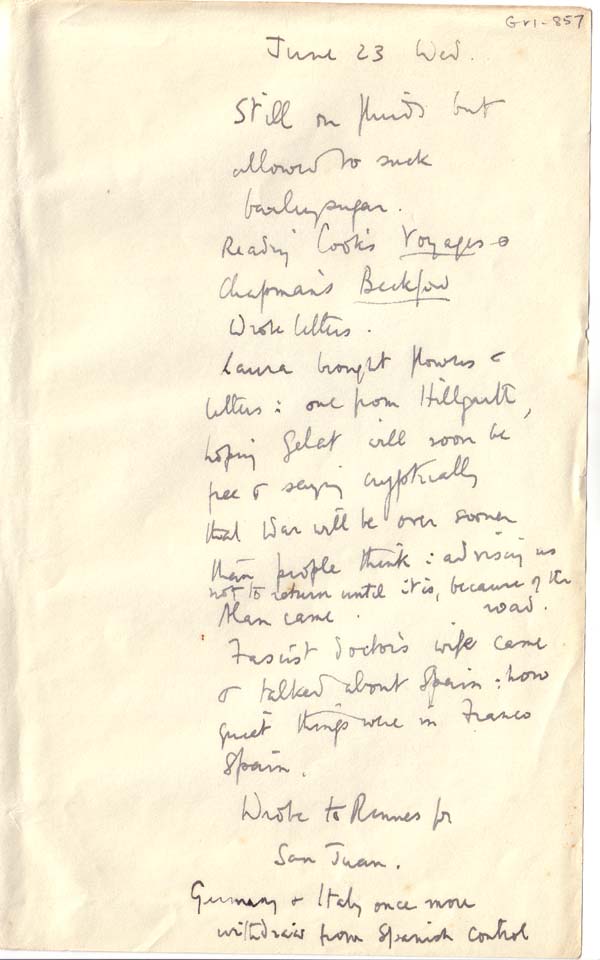 Gr1-857
June 23 Wed.
Still on fluids but
allowed to suck
barleysugar.
Reading Cook's Voyages &
Chapman's Beckford
Wrote letters.
Laura brought flowers &
letters: one from Hillgarth,
hoping Gelat will soon be
free & saying cryptically
that War will be over sooner
than people think: advising us
not to return until it is, because of the
road.
Alan came.
Fascist doctor's wife came
& talked about Spain: how
quiet things were in Franco
Spain.
Wrote to Rennes for
San Juan.
Germany & Italy once more
withdraw from Spanish control